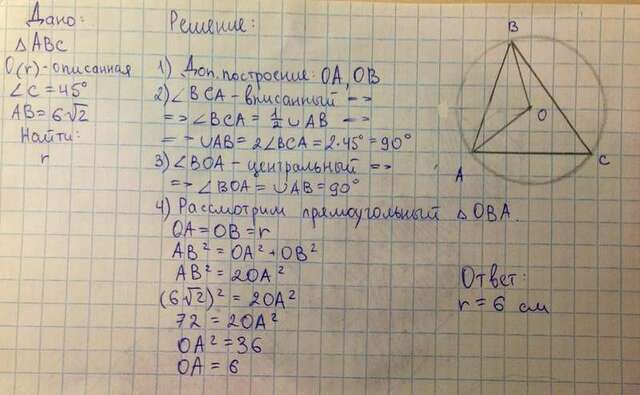 Дано:
△ABC
O(r)-описанная
∠C = 45°
AB = 6√2
Найти:
r
Решение:
1) Доп. построение: OA, OB
2) ∠BCA - вписанный =>
=> ∠BCA = 1/2 ∪AB =>
=> ∪AB = 2∠BCA = 2·45° = 90°
3) ∠BOA - центральный =>
=> ∠BOA = ∪AB = 90°
4) Рассмотрим прямоугольный △OBA.
OA = OB = r
AB² = OA² + OB²
AB² = 2OA²
(6√2)² = 2OA²
72 = 2OA²
OA² = 36
OA = 6
B
O
A
C
Ответ:
r = 6 см